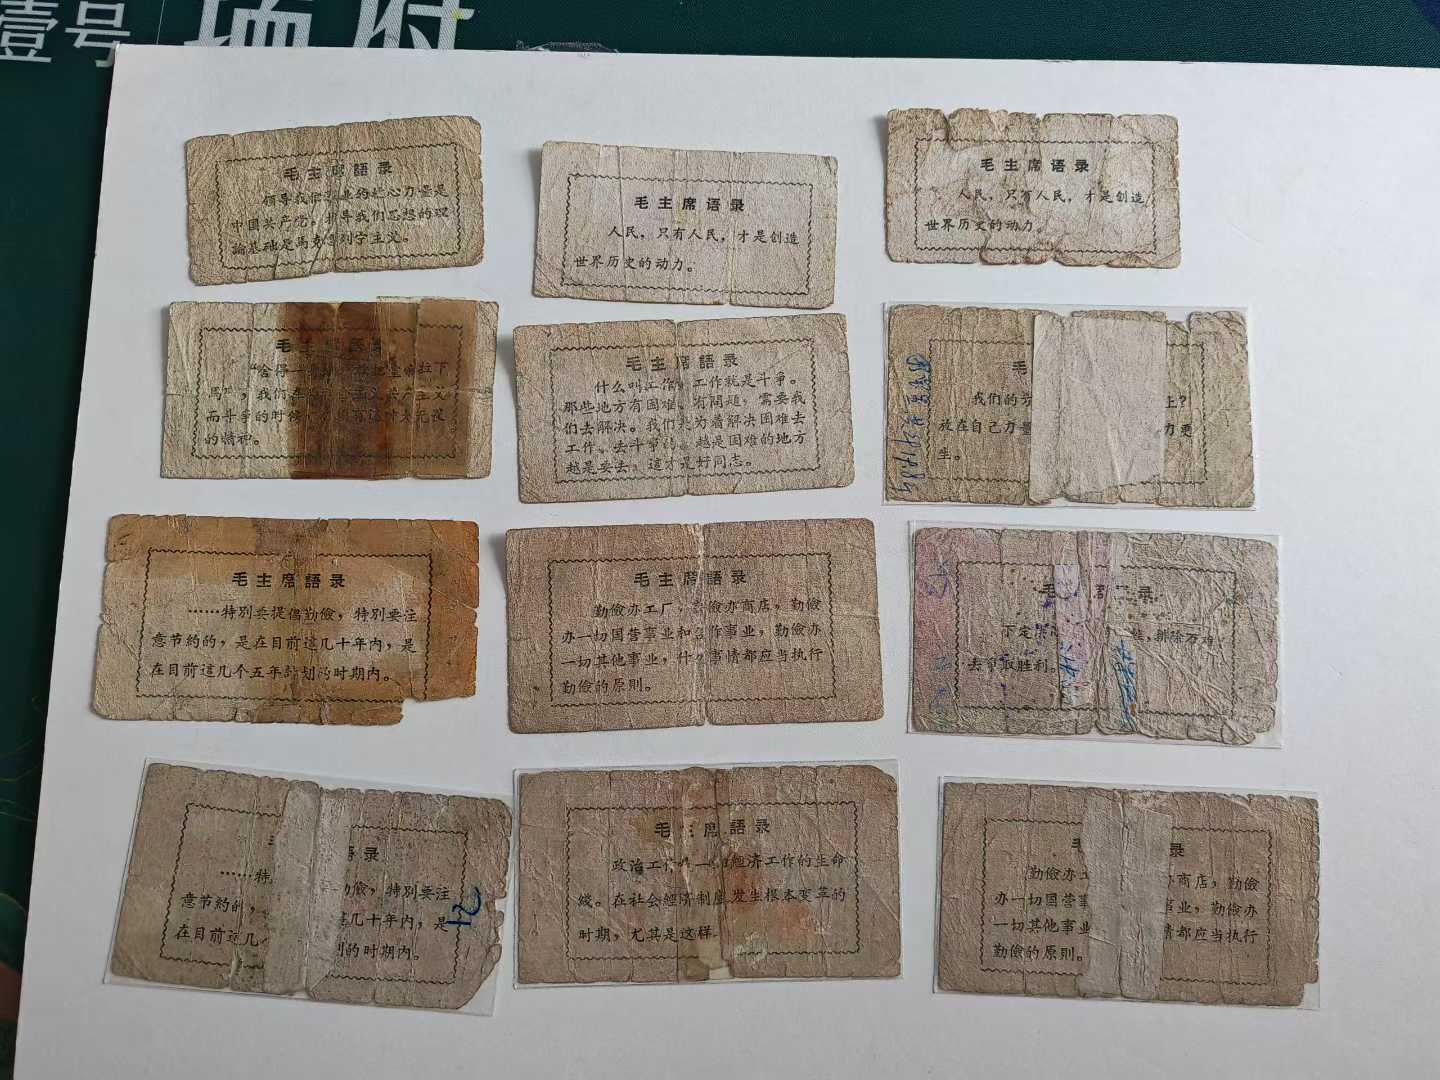 壹号
府
毛主席語录
领导我们事业的核心力量是
中国共产党。指导我们思想的理
論基础是馬克思列宁主义。
毛主席语录
人民，只有人民，才是创造
世界历史的动力。
毛主席语录
人民，只有人民，才是创造
世界历史的动力。
毛主席語录
“舍得一 拉下
馬”，我们在 主义
而斗爭的时候， 无畏
的精神。
毛主席語录
什么叫工作，工作就是斗爭。
那些地方有困难、有問題，需要我
们去解决。我们是为着解决困难去
工作、去斗爭的。越是困难的地方
越是要去，這才是好同志。
毛
我们的方 上？
放在自己力量 力更
生。
毛主席語录
……特別要提倡勤儉，特別要注
意节約的，是在目前這几十年內，是
在目前這几个五年計划的时期內。
毛主席語录
勤儉办工厂，勤儉办商店，勤儉
办一切国营事业和合作事业，勤儉办
一切其他事业，什么事情都应当执行
勤儉的原則。
毛 席 录
下定决 ，排除万难，
去爭取胜利。
毛 語录
……特 勤儉，特別要注
意节約的， 這几十年內，是
在目前這几 划的时期內。
毛主席語录
政治工作是一切經济工作的生命
綫。在社会經济制度发生根本变革的
时期，尤其是这样。
毛 录
勤儉办工 办商店，勤儉
办一切国营事 事业，勤儉办
一切其他事业 情都应当执行
勤儉的原則。